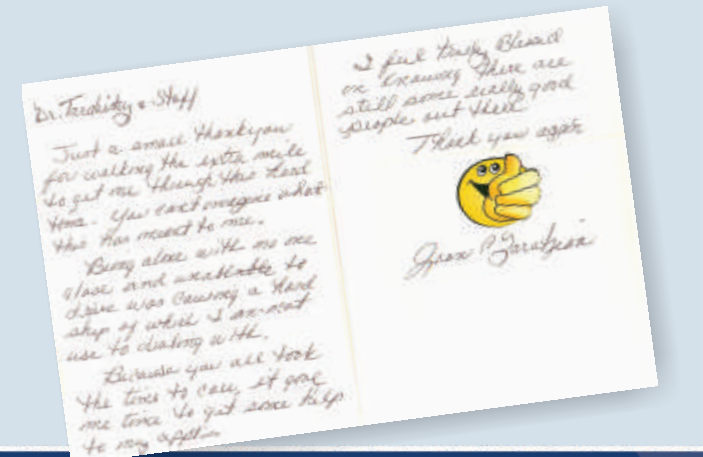 Dr. & Staff
Just a small thankyou
for walking the extra mile
to get me through this hard
time. You can't imagine what
this has meant to me.
Being alone with no one
close and unable to
drive was causing a hard
ship of which I am not
use to dealing with.
Because you all took
the time to care, it gave
me time to get some help
to my
I feel truly Blessed
on knowing there are
still some really good
people out there.
Thank you again
Joan